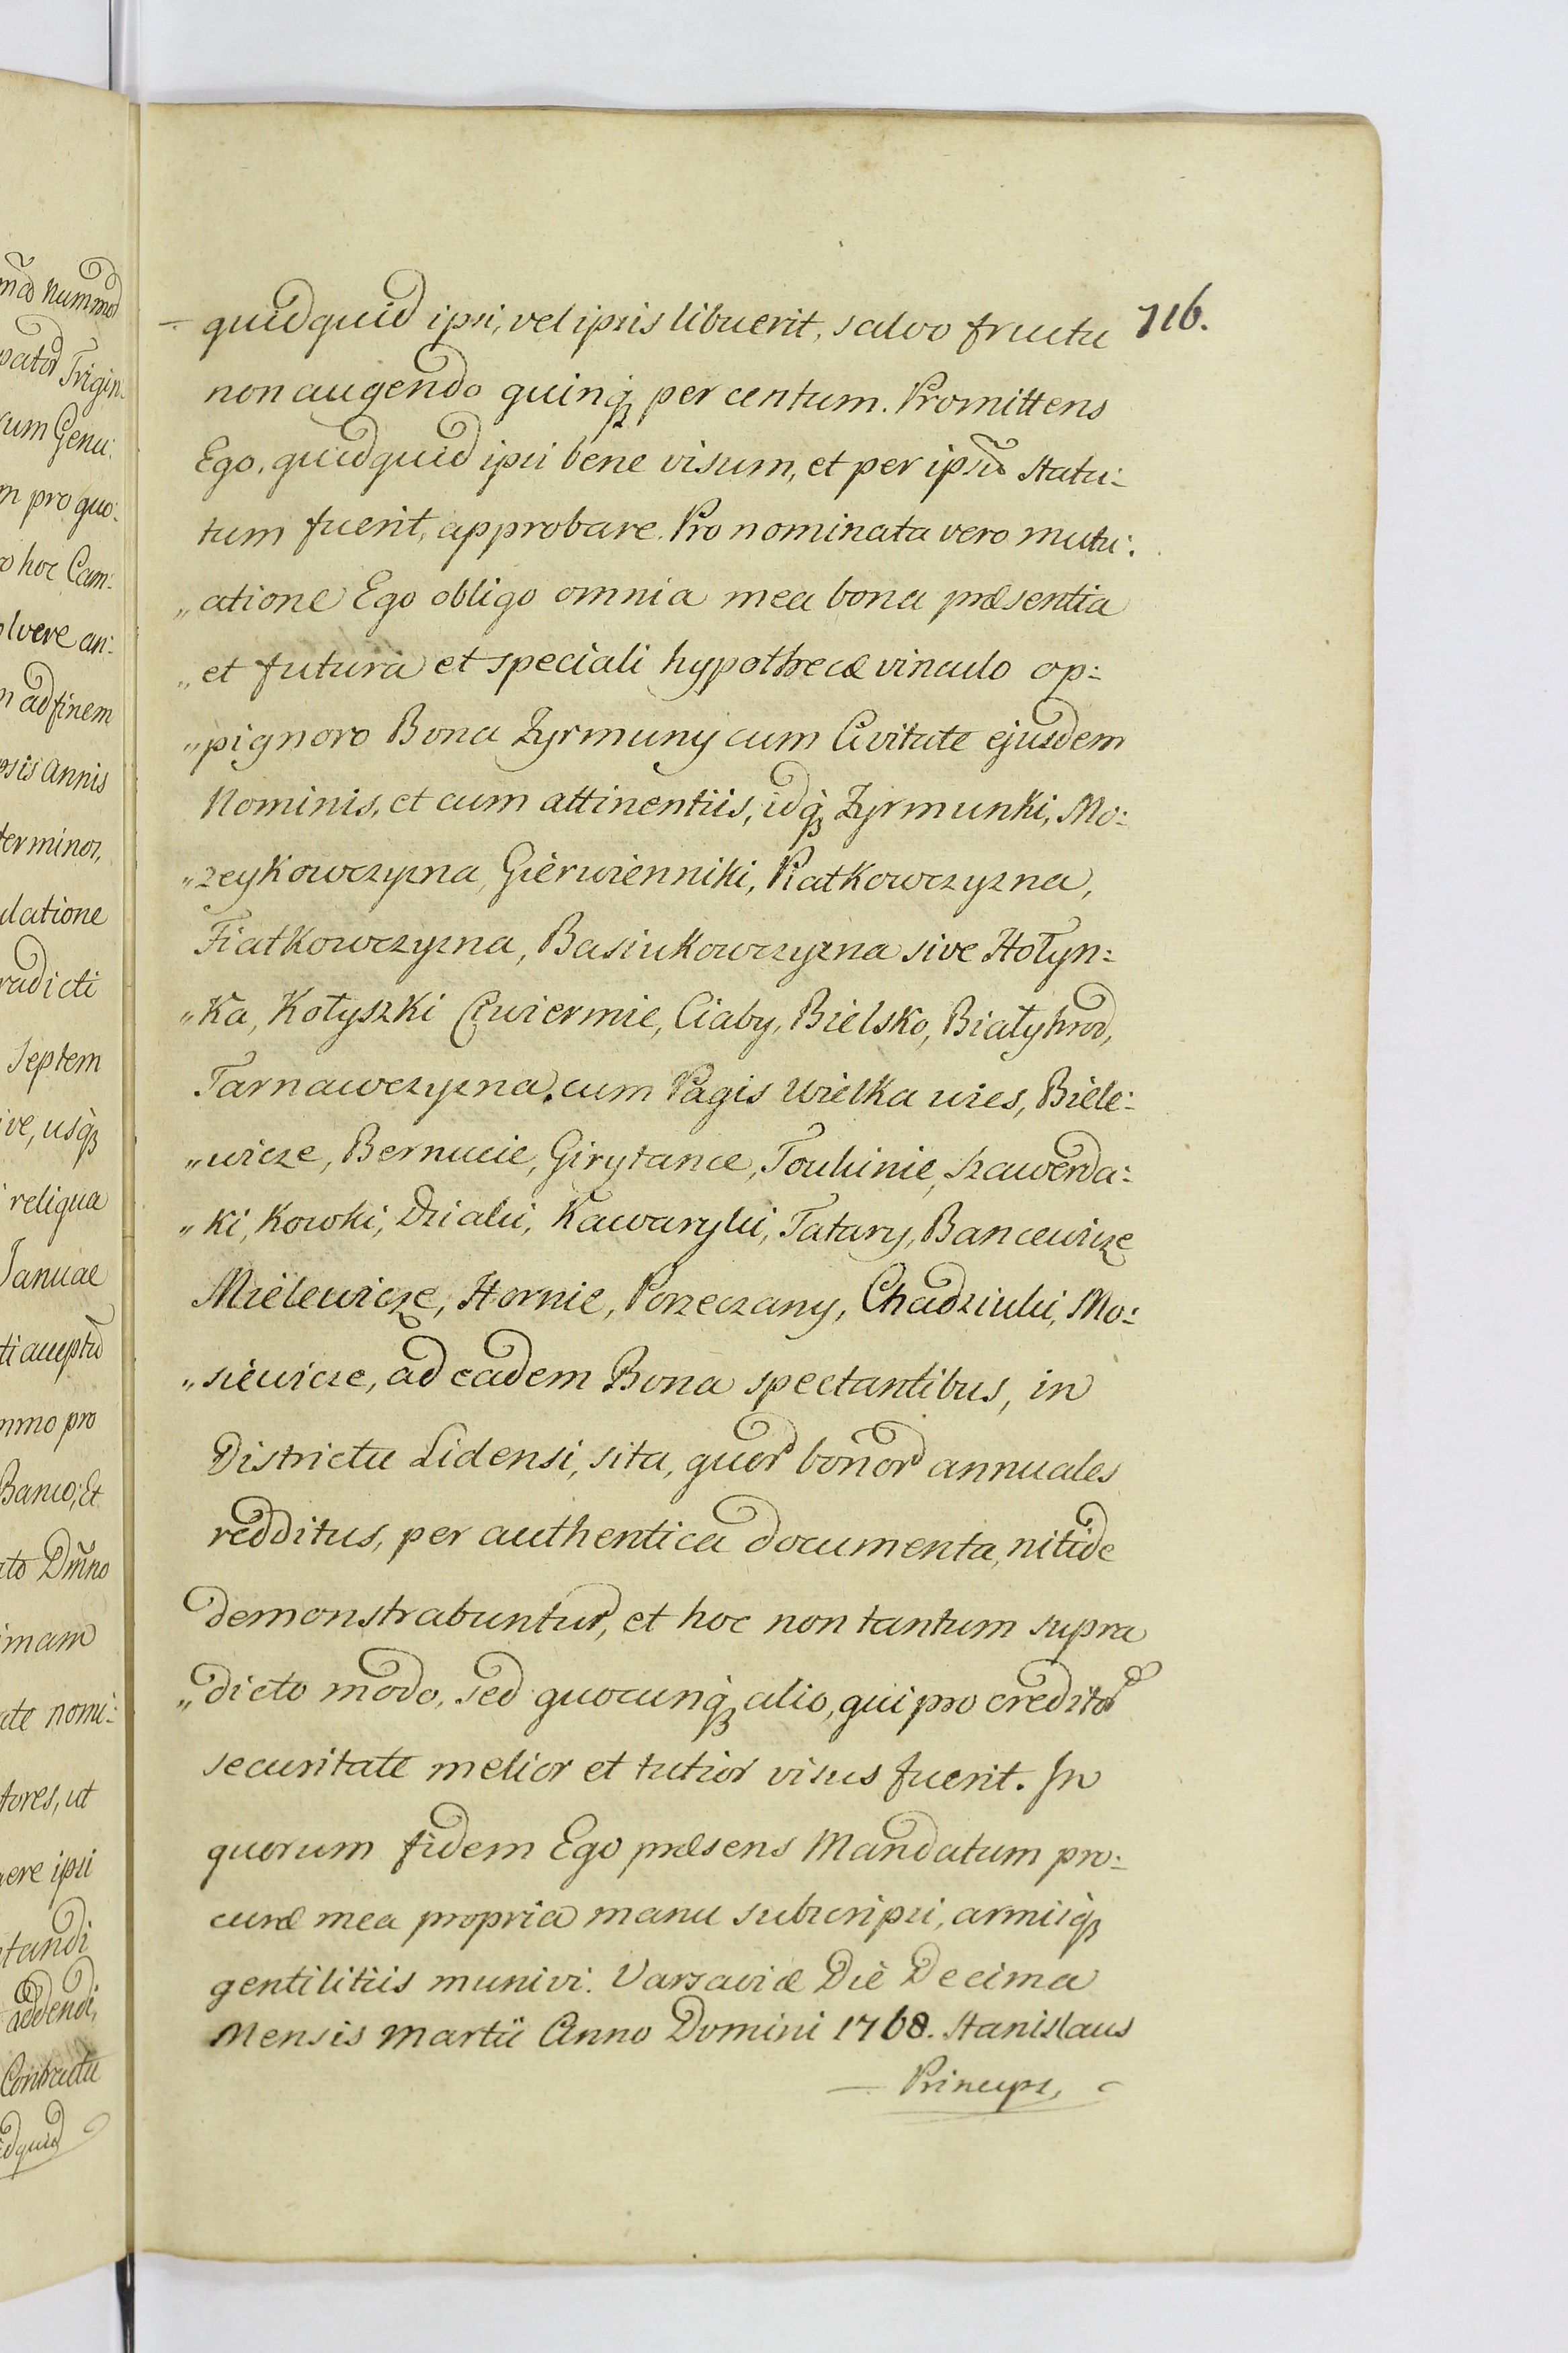 mâ Nummod
patod Trigin:
rum Genu:
m pro quo:
o hoc Cam:
olvere an:
m ad finem
osis annis
terminor,
ulatione
radicti
septem
ive, usq́ꝫ
reliqua
Januae
ti acceptū
mmo pro
Banco; Et
ato Dm̃no
imam
ate nomi:
tores, ut
ere ipsi
tandi
addendi,
Contractu
idquid
116.
quidquid ipsi, vel ipsis libuerit, salvo fructu
non augendo quinq́ꝫ per centum. Promittens
Ego, quidquid ipsi bene visum, et per ipsū statu:
tum fuerit, approbare. Pro nominata vero mutu:
„atione Ego obligo omnia mea bona præsentia
„et futura et speciali hypothecæ vinculo op:
„pignoro Bona Zyrmuny cum Civitate ejusdem
Nominis, et cum attinentiis, idq́ꝫ Zyrmunki, Mo:
„zeykowczyzna, Gierwienniki, Piatkowczyzna,
Fiatkowczyzna, Basiukowczyzna sive Hołyn:
„ka, Kołyszki Cwiermie, Ciaby, Bielsko, Białyhrod,
Tarnawczyzna. cum Pagis Wielka wies, Biele:
„wicze, Bernucie, Girytance, Touhinie, Szawerda:
„ki, Kowki, Dzialui, Kawaryluì, Tatary, Bancewicze
Mielewicze, Hornie, Porzeczany, Chadziului, Mo:
„siewicze, ad eadem Bona spectantibus, in
Districtu Lidensi, sita, quor bonor annuales
redditus, per authentica documenta, nitide
demonstrabuntur, et hoc non tantum supra
„dicto modo, sed quocunq́ꝫ alio, qui pro creditor
securitate melior et tutior visus fuerit. In
quorum fidem Ego præsens Mandatum pro:
curæ mea propria manu subscripsi, armisq́ꝫ
gentilitiis munivi. Varsaviæ Die Decima
Mensis Martii Anno Domini 1768. Stanislaus
— Princeps,